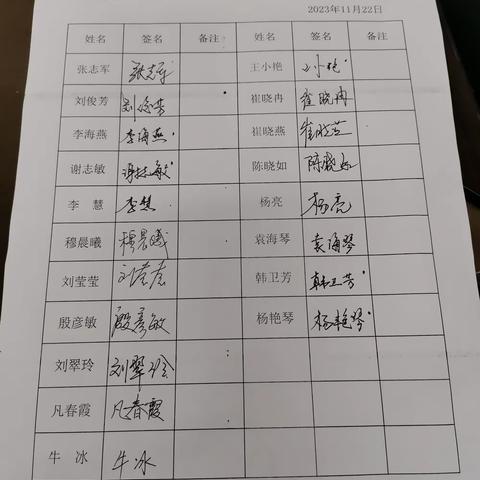 2023年11月22日
姓名 签名 备注 姓名 签名 备注
张志军 张志军 王小艳 王小艳
刘俊芳 刘俊芳 崔晓冉 崔晓冉
李海燕 李海燕 崔晓燕 崔晓燕
谢志敏 谢志敏 陈晓如 陈晓如
李 慧 李慧 杨亮 杨亮
穆晨曦 穆晨曦 袁海琴 袁海琴
刘莹莹 刘莹莹 韩卫芳 韩卫芳
殷彦敏 殷彦敏 杨艳琴 杨艳琴
刘翠玲 刘翠玲
凡春霞 凡春霞
牛 冰 牛冰